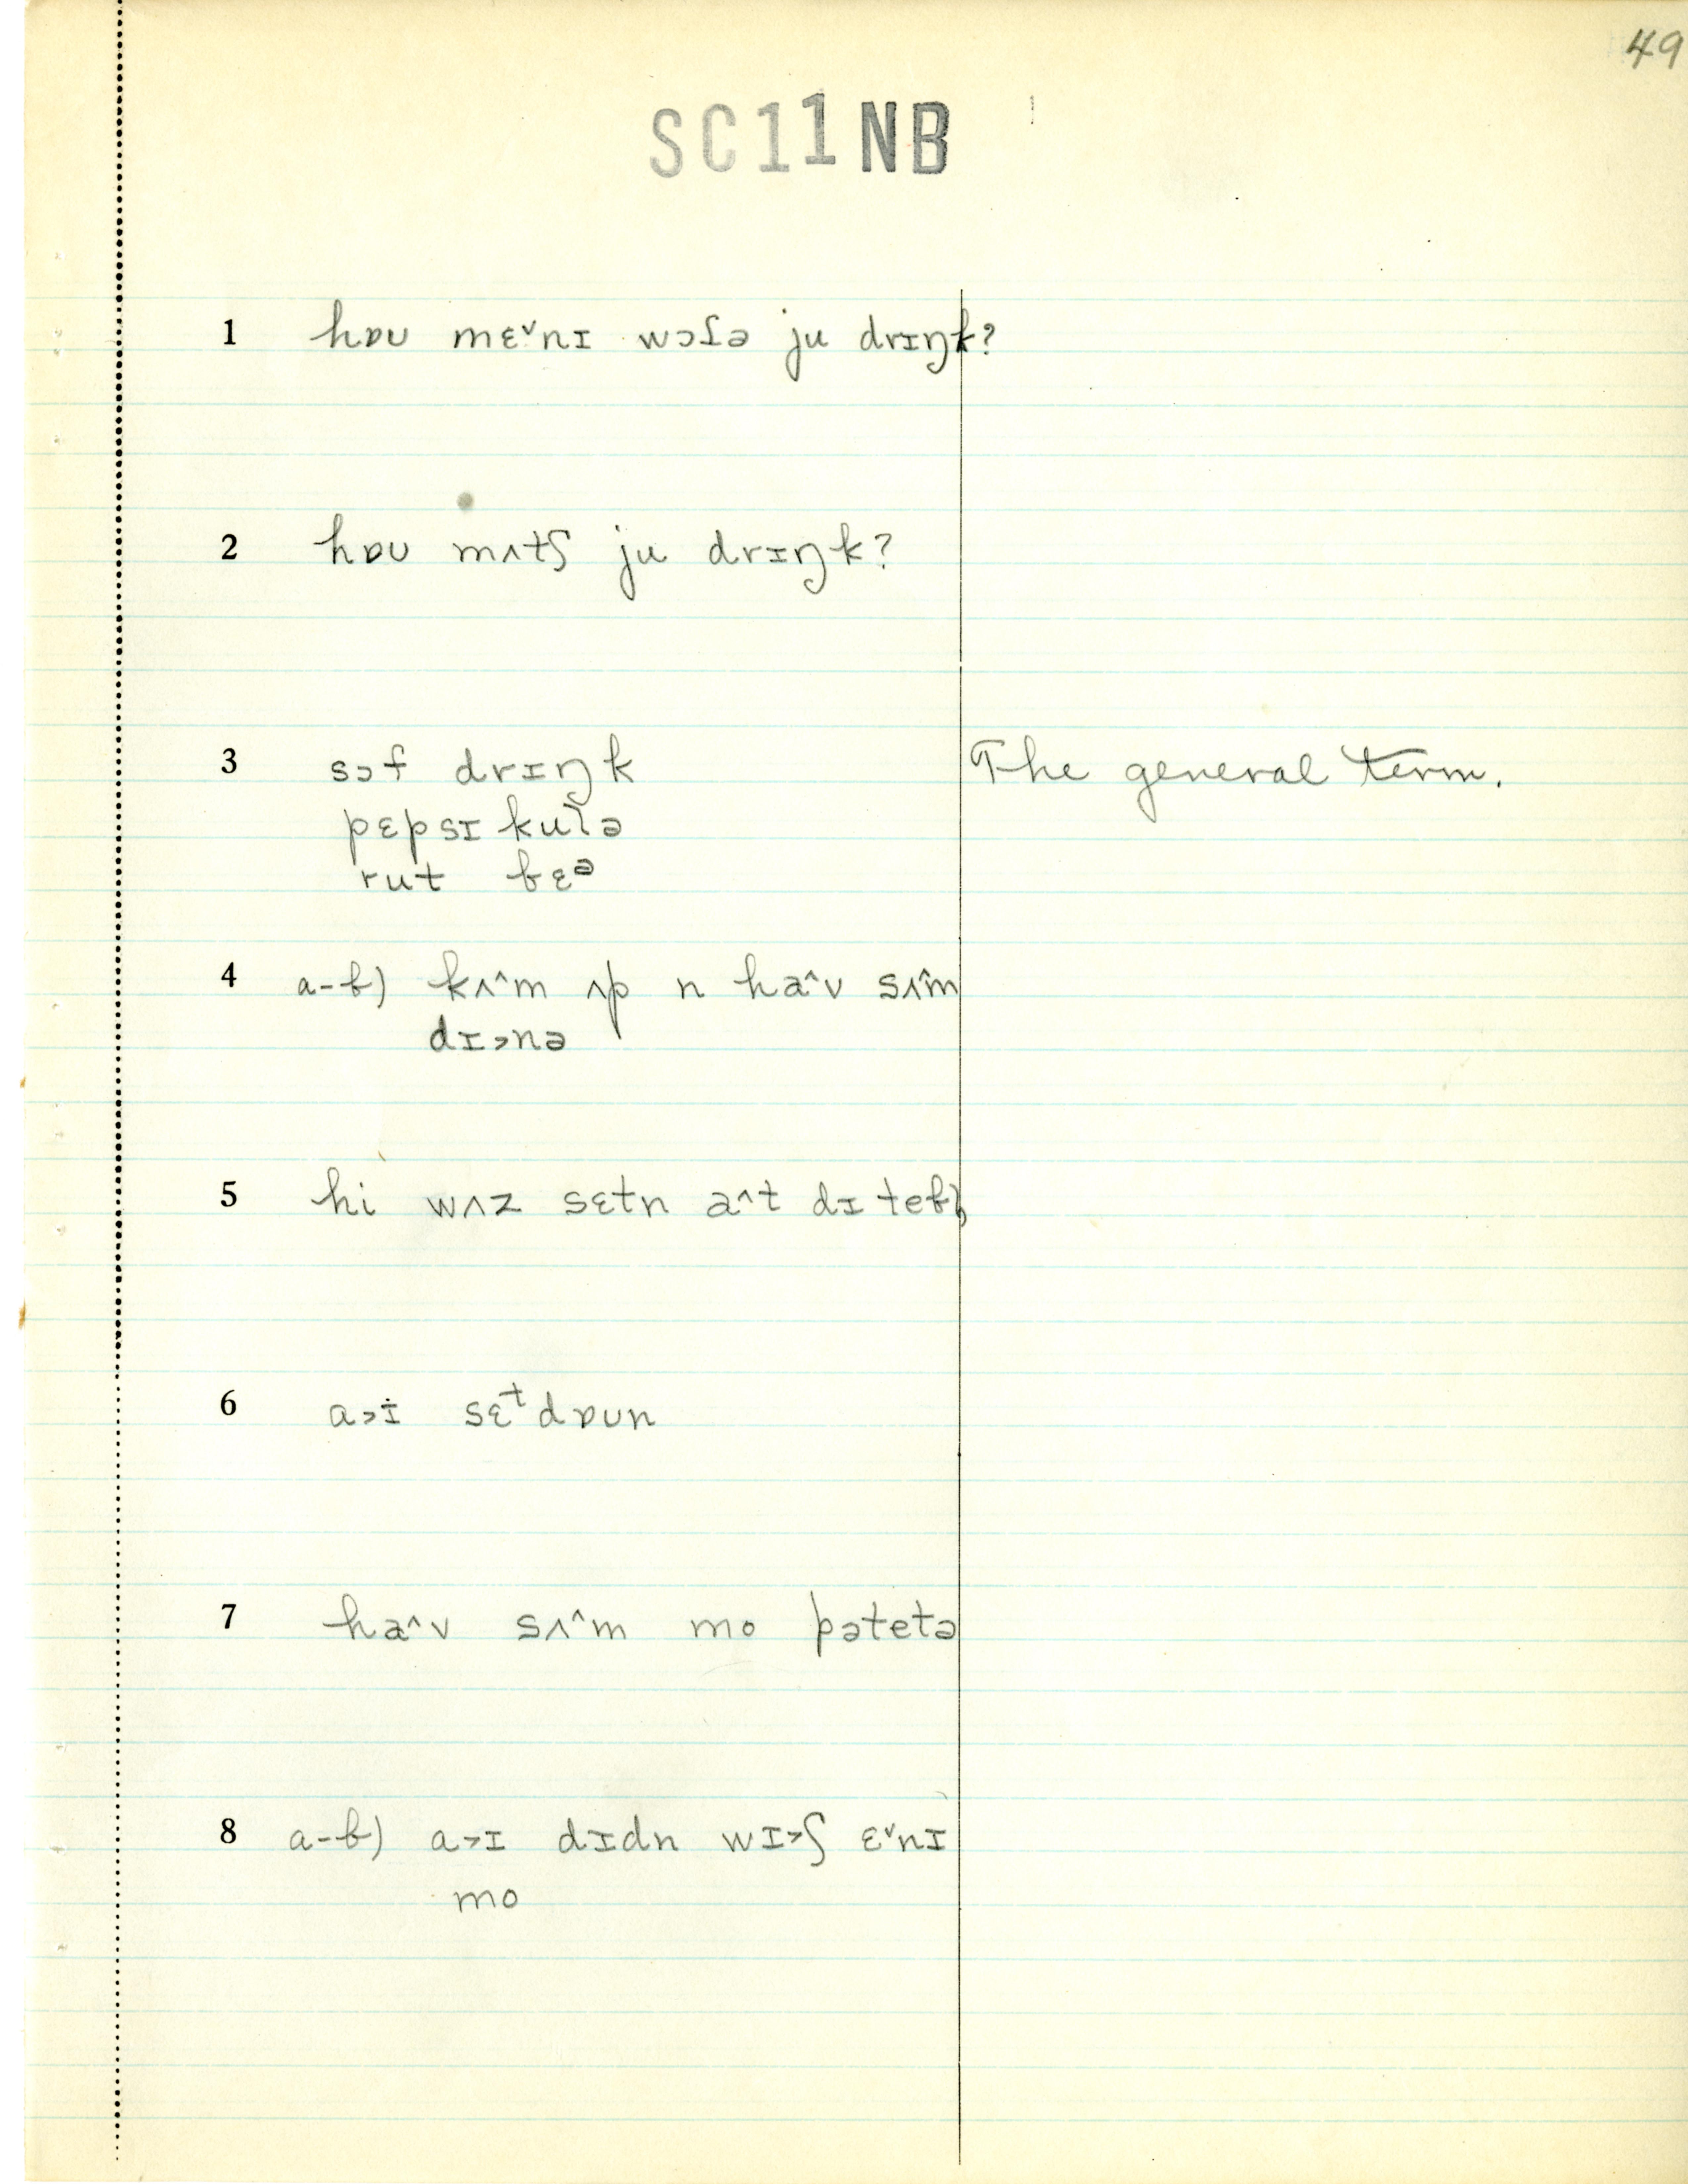 49
SC11NB
1 hɒʊ mɛˇnɪ wɔɾə ju drɪŋk?
2 hɒʊ mʌtʃ ju drɪŋk?
3 sɔf drɪŋk The general term.
pɛpsɪ kulə
rut bɛᵊ
4 a-b) kʌ^m ʌp n ha^v sʌ^m
dɪ>nə
5 hi wʌz sɛtn a^t dɪ tebl̩
6 a>ɨ sɛᵗdɒʊn
7 ha^v sʌ^m mo pətetə
8 a-b) a>ɪ dɪdn wɪ>ʃ ɛˇnɪ
mo